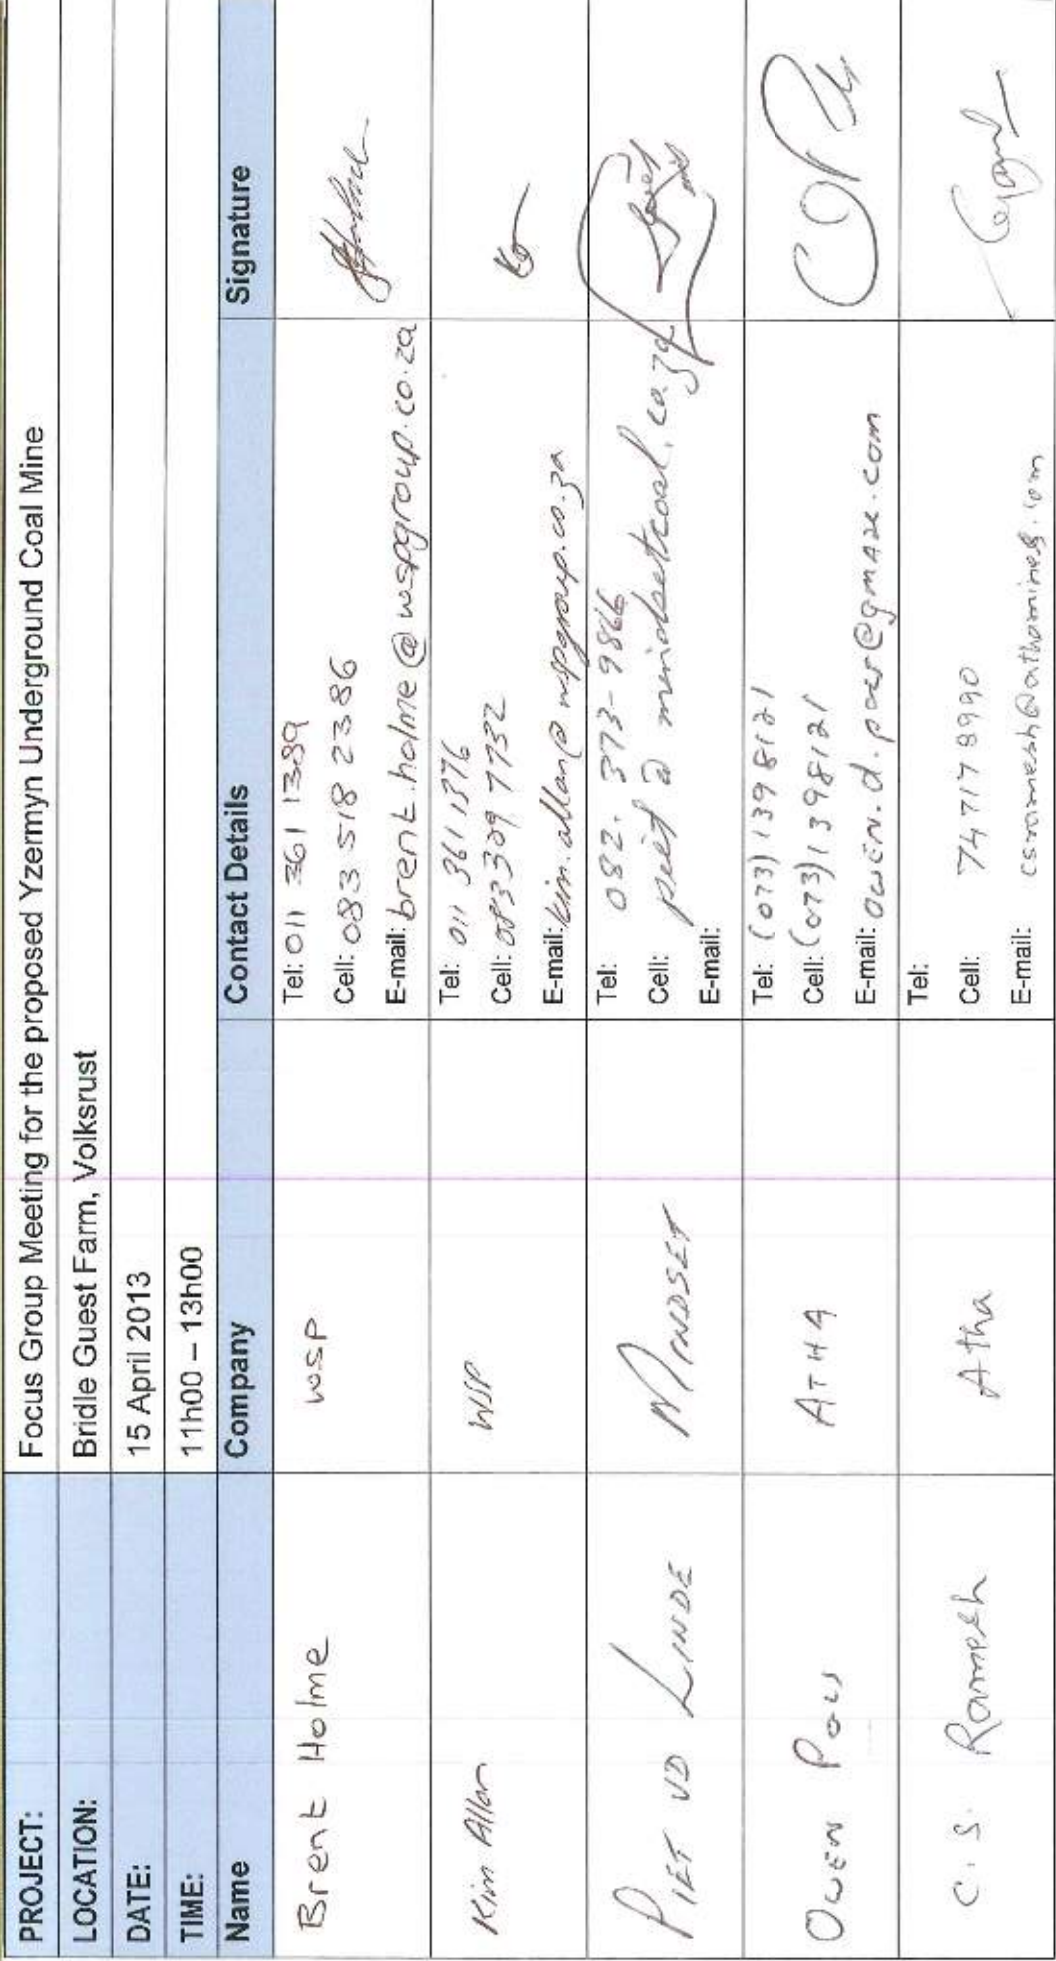 PROJECT: Focus Group Meeting for the proposed Yzermyn Underground Coal Mine
LOCATION: Bridle Guest Farm, Volksrust
DATE: 15 April 2013
TIME: 11h00 – 13h00
Name Company Contact Details Signature
Brent Holme WSP Tel: 011 361 1389
Cell: 083 518 2386
E-mail: brent.holme@wspgroup.co.za
Kim Allan WSP Tel: 011 361 1376
Cell: 083 309 7732
E-mail: kim.allan@wspgroup.co.za
PIET VD LINDE MINDSET Tel: 082. 373-9866
Cell: piet@mindsetcoal.co.za
E-mail:
OWEN ATHA Tel: (073) 1398121
Cell: (073) 1398121
E-mail:
C. S. Ramesh Atha Tel:
Cell: 74 717 8990
E-mail: csramesh@athamines.com